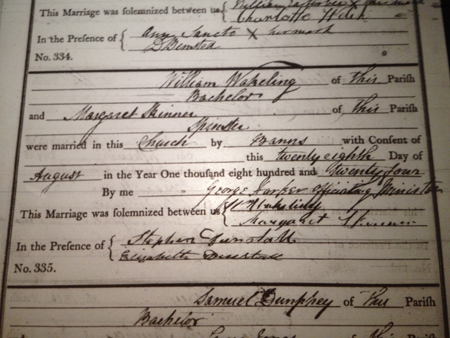 This Marriage was solemnized between us {
Charlotte
In the Presence of { Ann X her mark
No. 334.
William Wakeling of this Parish
Bachelor
and Margaret Skinner of this Parish
Spinster
were married in this Church by Banns with Consent of
this twenty eighth Day of
August in the Year One thousand eight hundred and twenty four
By me George Harper Officiating Minister
This Marriage was solemnized between us { Wm Wakeling
Margaret Skinner
In the Presence of { Stephen Dunstall
Elizabeth Dunstall
No. 335.
Samuel Dumphrey of this Parish
Bachelor